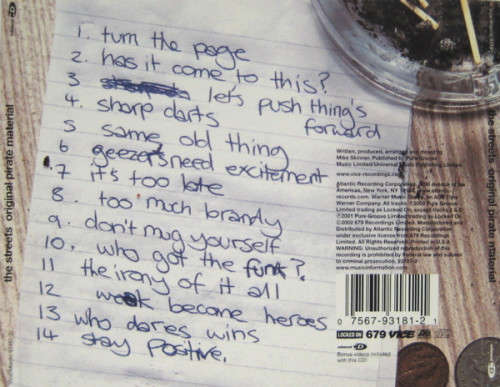 1. turn the page
2. has it come to this?
3 let's push thing's
forward
4. sharp darts
5 same old thing
6 geezers need excitement
7 it's too late
8. too much brandy
9. don't mug yourself
10. who got the funk?
11 the irony of it all
12 weak become heroes
13 who dares wins
14 stay positive.
the streets original pirate material
the streets original pirate material
Written, produced, arranged and mixed by
Mike Skinner. Published by Pure Groove
Music Limited/Universal Music Publishing
www.vice-recordings.com
Atlantic Recording Corporation, 1290 Avenue of the
Americas, New York, NY
records.com. Warner Music Group, an AOL Time
Warner Company.
Limited trading as Locked On, except tracks
2001 Pure Groove Limited trading as Locked On
©2002 679 Recordings Limited. Manufactured and
Distributed by Atlantic Recording Corporation
under exclusive licence from 679 Recordings
Limited. All Rights Reserved. Printed in U.S.A.
WARNING: Unauthorized reproduction of this
recording is prohibited by Federal law and subject
to criminal prosecution. 93181-2
www.musicinformation.com
0 7567-93181-2 1
LOCKED ON 679 VICE
Bonus videos included
with this CD!